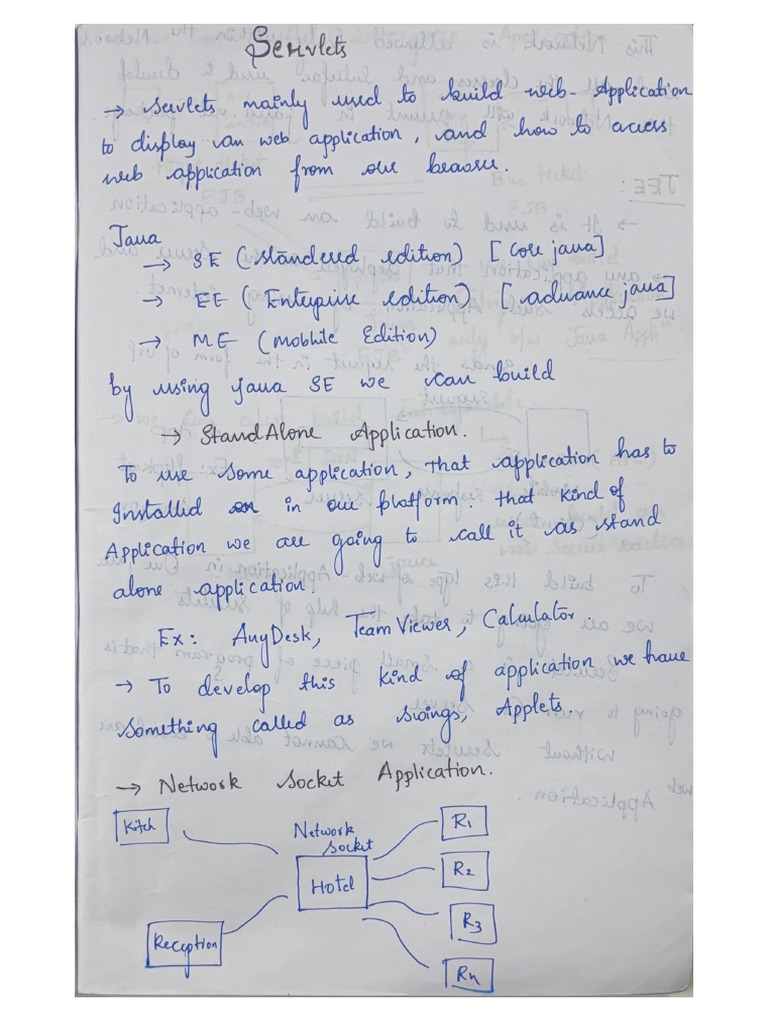 Servlets
→ Servlets mainly used to build web-Application
to display an web application, and how to access
web application from our browse.
Java
→ SE (standered edition) [core java]
→ EE (Enterprise edition) [advance java]
→ ME (mobhile Edition)
by using java SE we can build
→ StandAlone Application.
To use some application, that application has to
Installed in our platform. that kind of
Application we are going to call it as stand
alone application.
Ex: AnyDesk, TeamViewer, Calculator.
→ To develop this kind of application we have
something called as swings, Applets.
→ Network Socket Application.
Kitch
Network
socket
R1
Hotel
R2
Reception
R3
Rn